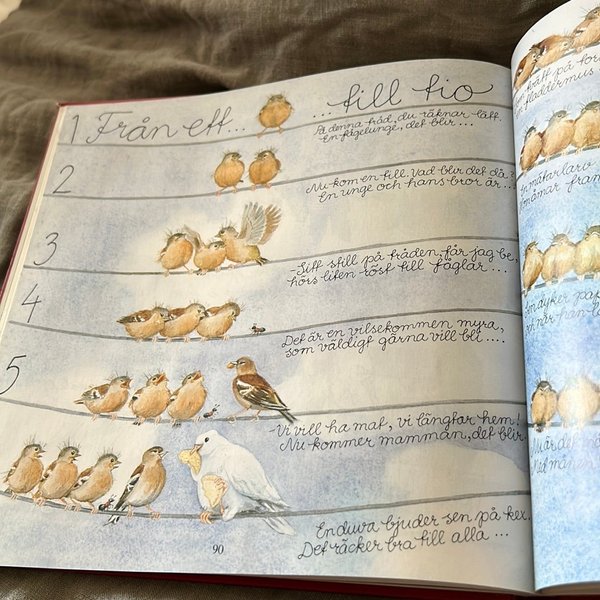 1 Från ett... ...till tio
På denna tråd, du räknar lätt.
En fågelunge, det blir...
2
Nu kom en till. Vad blir det då?
En unge och hans bror är...
3
-Sitt still på tråden, får jag be,
hörs liten röst till fåglar...
4
Det är en vilsekommen myra,
som väldigt gärna vill bli....
5
-Vi vill ha mat, vi längtar hem!
Nu kommer mamman, det blir
En duva bjuder sen på kex.
Det räcker bra till alla...
90